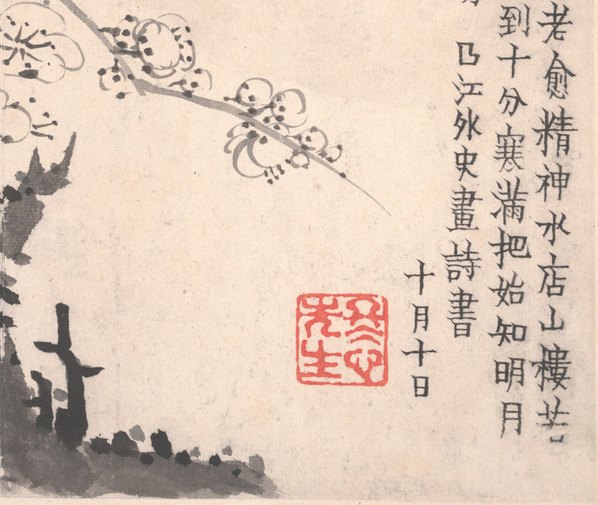 老愈精神水店山樓
到十分寒滿把始知明月
江外史畫詩書
十月十日
冬心先生